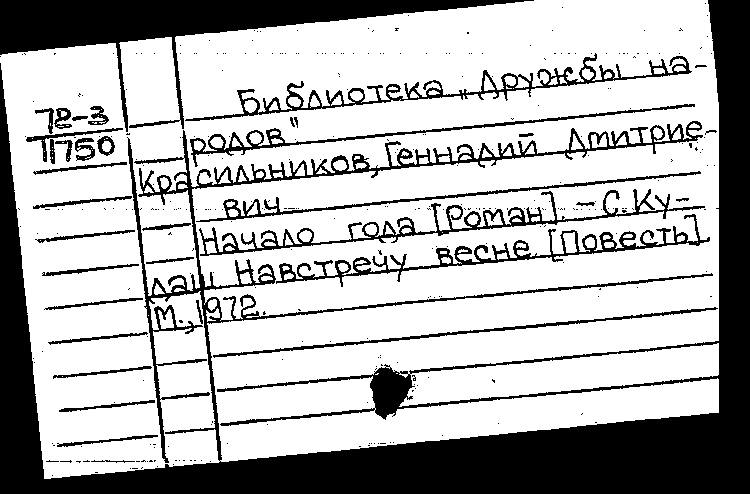 Библиотека „Дружбы на-
72-3
71750
родов"
Красильников, Геннадий Дмитрие-
вич
Начало года [Роман]. - С. Ку-
лаш Навстречу весне [Повесть]
М., 1972.